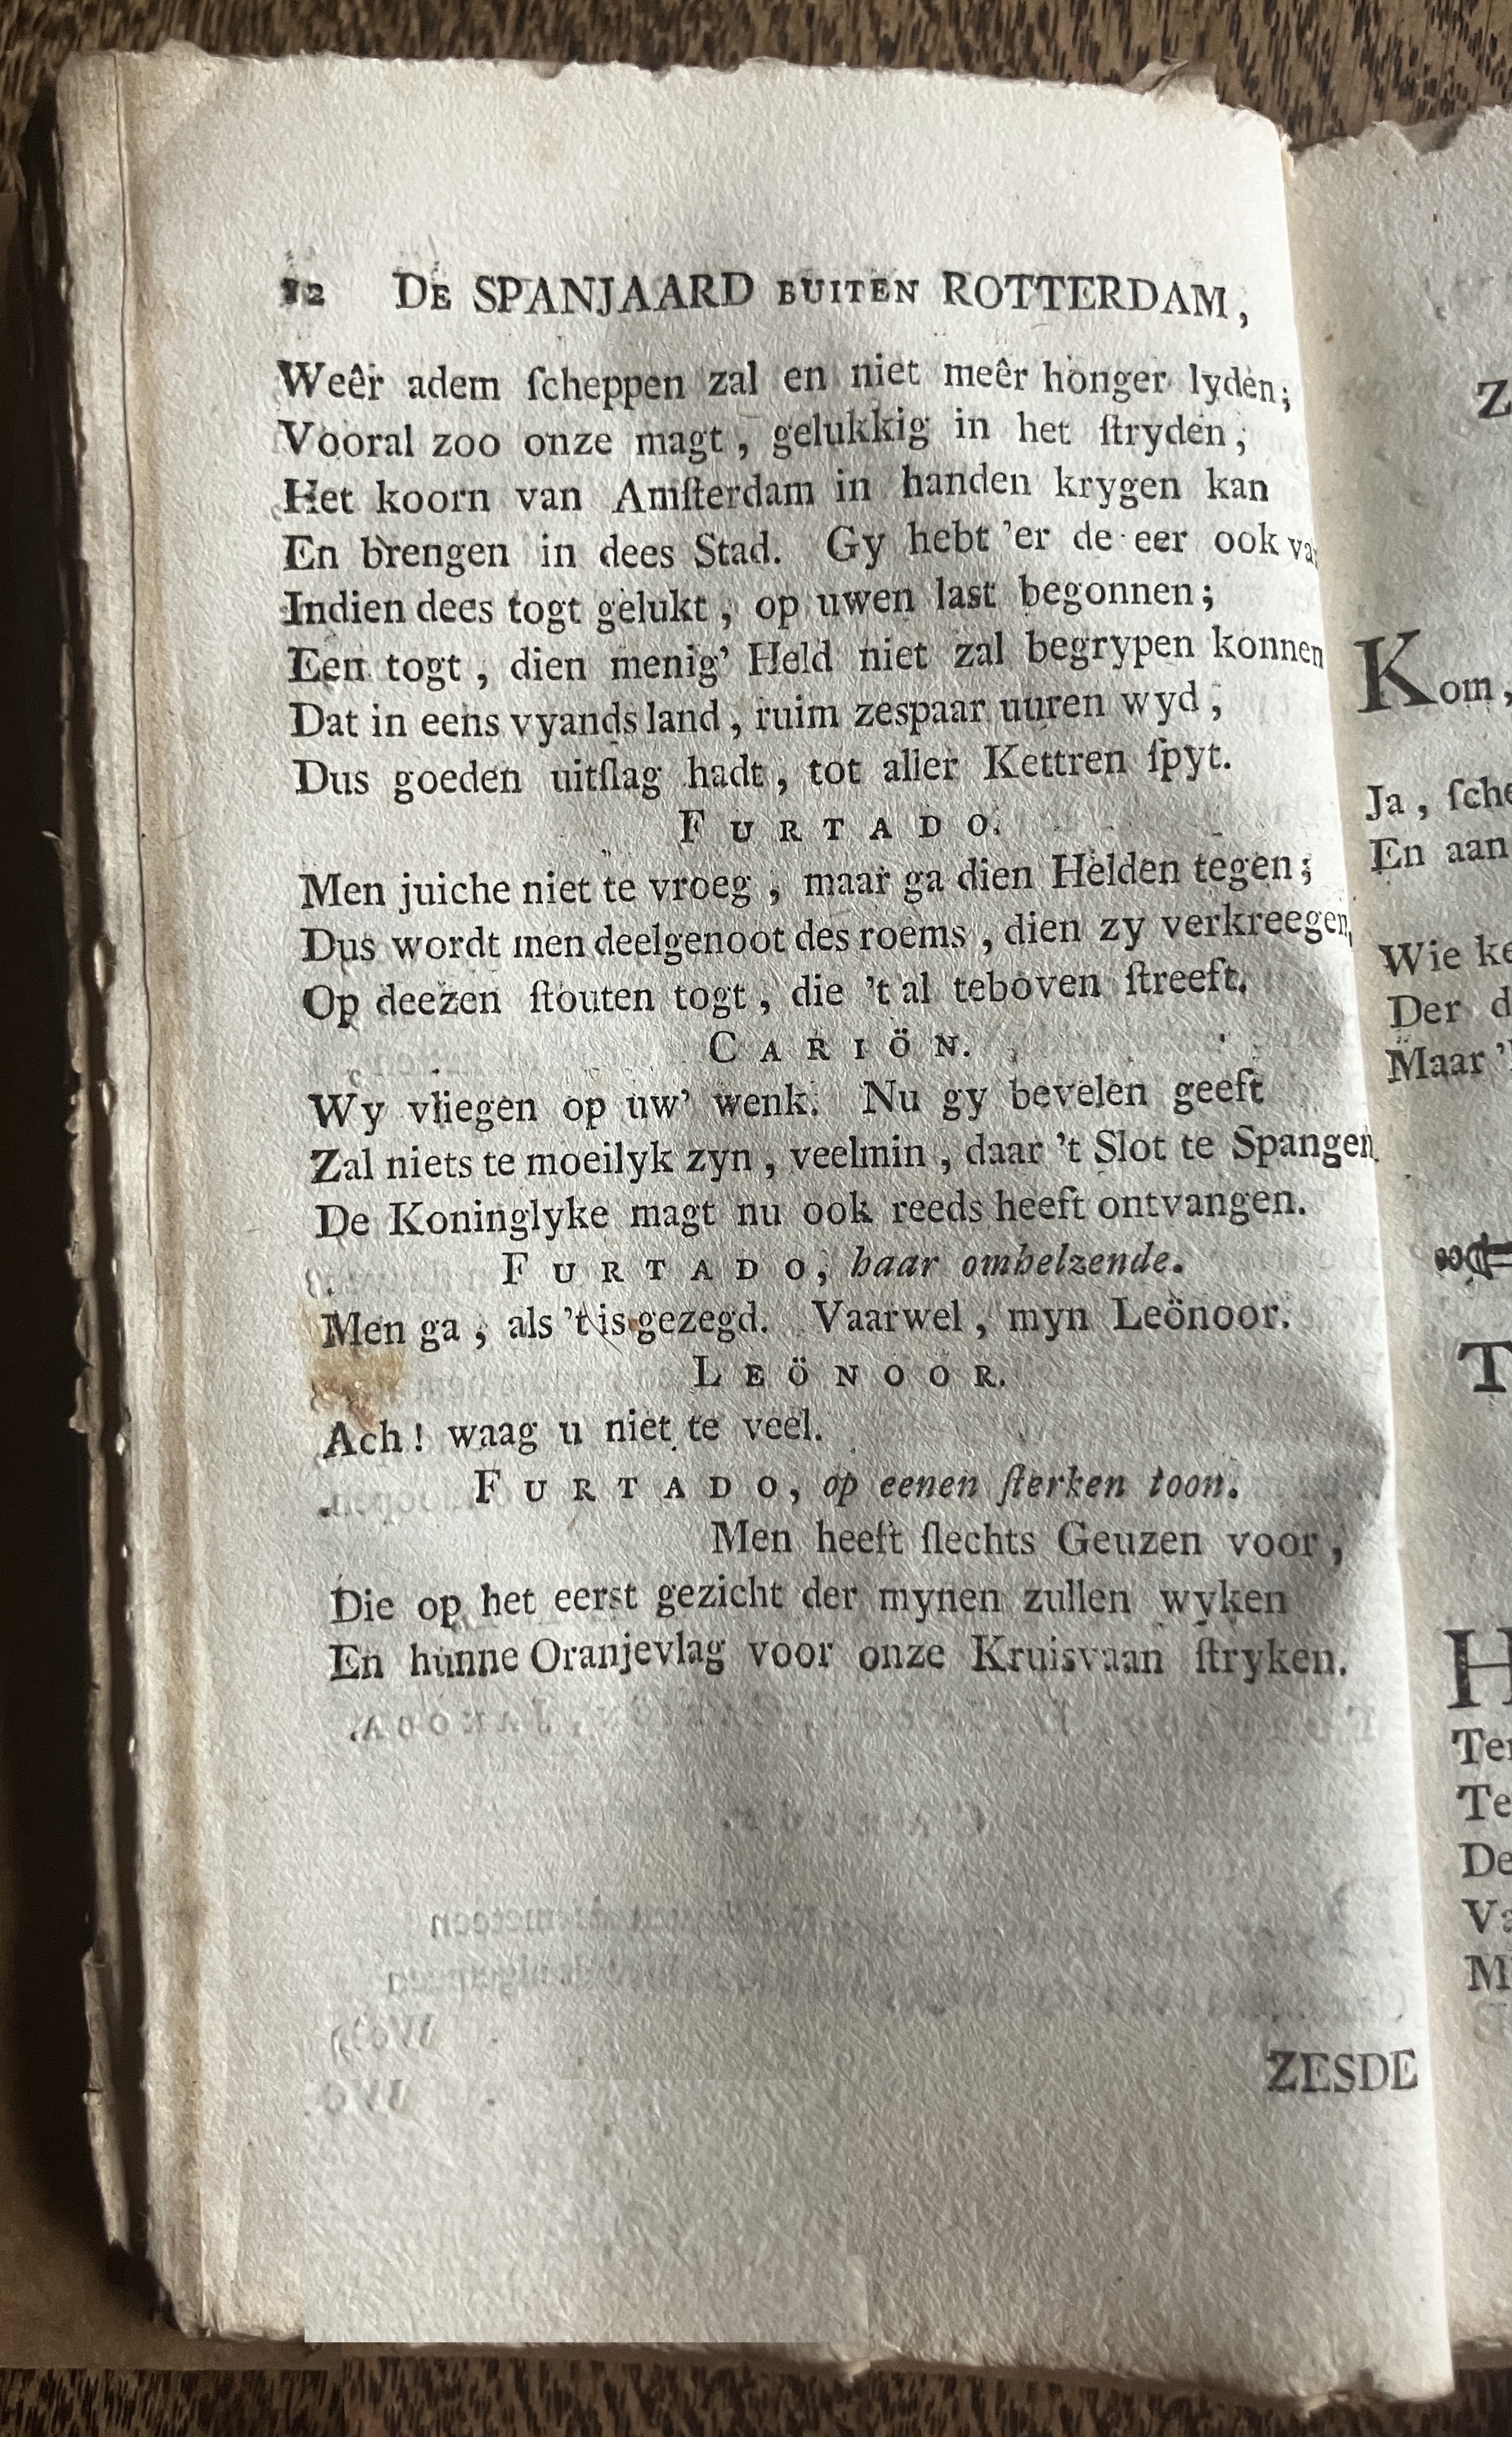 12 DE SPANJAARD BUITEN ROTTERDAM,
Weêr adem ſcheppen zal en niet meêr honger lyden;
Vooral zoo onze magt, gelukkig in het ſtryden,
Het koorn van Amſterdam in handen krygen kan
En brengen in dees Stad. Gy hebt 'er de eer ook
Indien dees togt gelukt, op uwen last begonnen;
Een togt, dien menig' Held niet zal begrypen konnen
Dat in eens vyands land, ruim zespaar uuren wyd,
Dus goeden uitſlag hadt, tot aller Kettren ſpyt.
FURTADO.
Men juiche niet te vroeg, maar ga dien Helden tegen;
Dus wordt men deelgenoot des roems, dien zy verkreegen,
Op deezen ſtouten togt, die 't al teboven ſtreeft.
CARIÖN.
Wy vliegen op uw' wenk. Nu gy bevelen geeft
Zal niets te moeilyk zyn, veelmin, daar 't Slot te Spangen
De Koninglyke magt nu ook reeds heeft ontvangen.
FURTADO, haar omhelzende.
Men ga, als 't is gezegd. Vaarwel, myn Leönoor.
LEÖNOOR.
Ach! waag u niet te veel.
FURTADO, op eenen ſterken toon.
Men heeft ſlechts Geuzen voor,
Die op het eerst gezicht der mynen zullen wyken
En hunne Oranjevlag voor onze Kruisvaan ſtryken.
ZESDE
Z
Kom,
Ja, ſche
En aan
Wie ke
Der d
Maar '
T
H
Ter
Te
De
Va
M